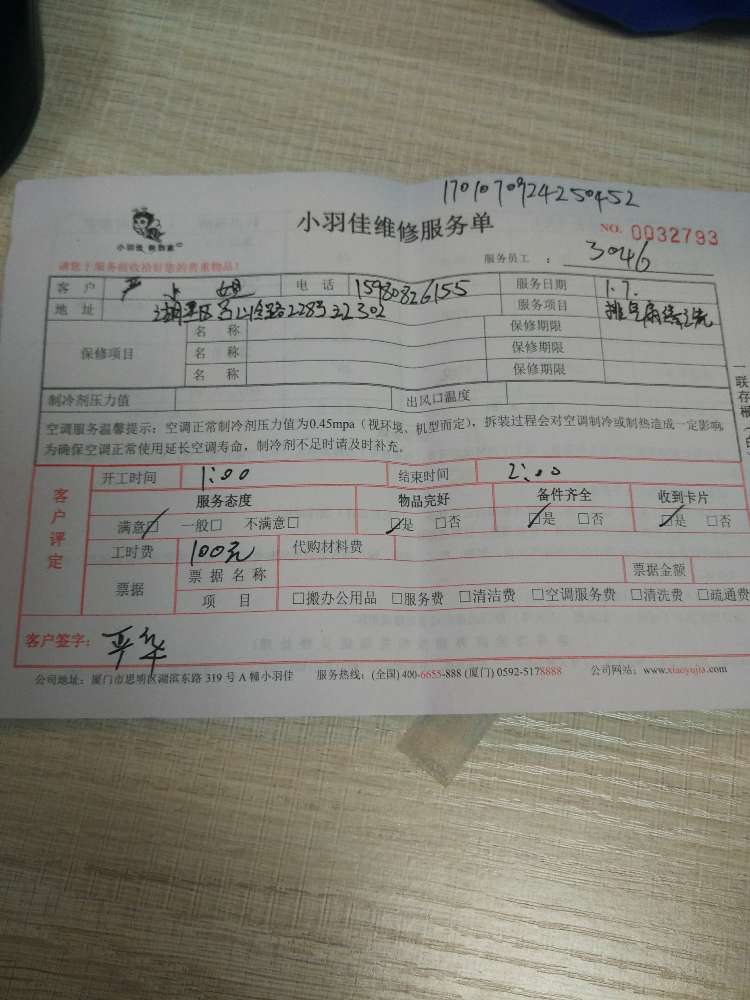 1701070924250452
小羽佳维修服务单
NO. 0032793
小羽佳
服务员工 : 3046
请您于服务前收拾好您的贵重物品!
客 户 严 小 姐 电 话 15980826155 服务日期 1.7.
地 址 湖里区 228号 302 服务项目 排气扇
保修项目 名 称 保修期限
名 称 保修期限
名 称 保修期限
制冷剂压力值 出风口温度
空调服务温馨提示：空调正常制冷剂压力值为0.45mpa（视环境、机型而定），拆装过程会对空调制冷或制热造成一定影响,
为确保空调正常使用延长空调寿命，制冷剂不足时请及时补充。
一联存根
客户评定
开工时间 1:00 结束时间 2:00
服务态度 物品完好 备件齐全 收到卡片
满意☑ 一般□ 不满意□ ☑是 □否 ☑是 □否 ☑是 □否
工时费 100元 代购材料费
票据 票 据 名 称 票据金额
项 目 □搬办公用品 □服务费 □清洁费 □空调服务费 □清洗费 □疏通费
客户签字:
公司地址：厦门市思明区湖滨东路 319 号 A 幢小羽佳 服务热线：(全国) 400-6655-888 (厦门) 0592-5178888 公司网站：www.xiaoyujia.com